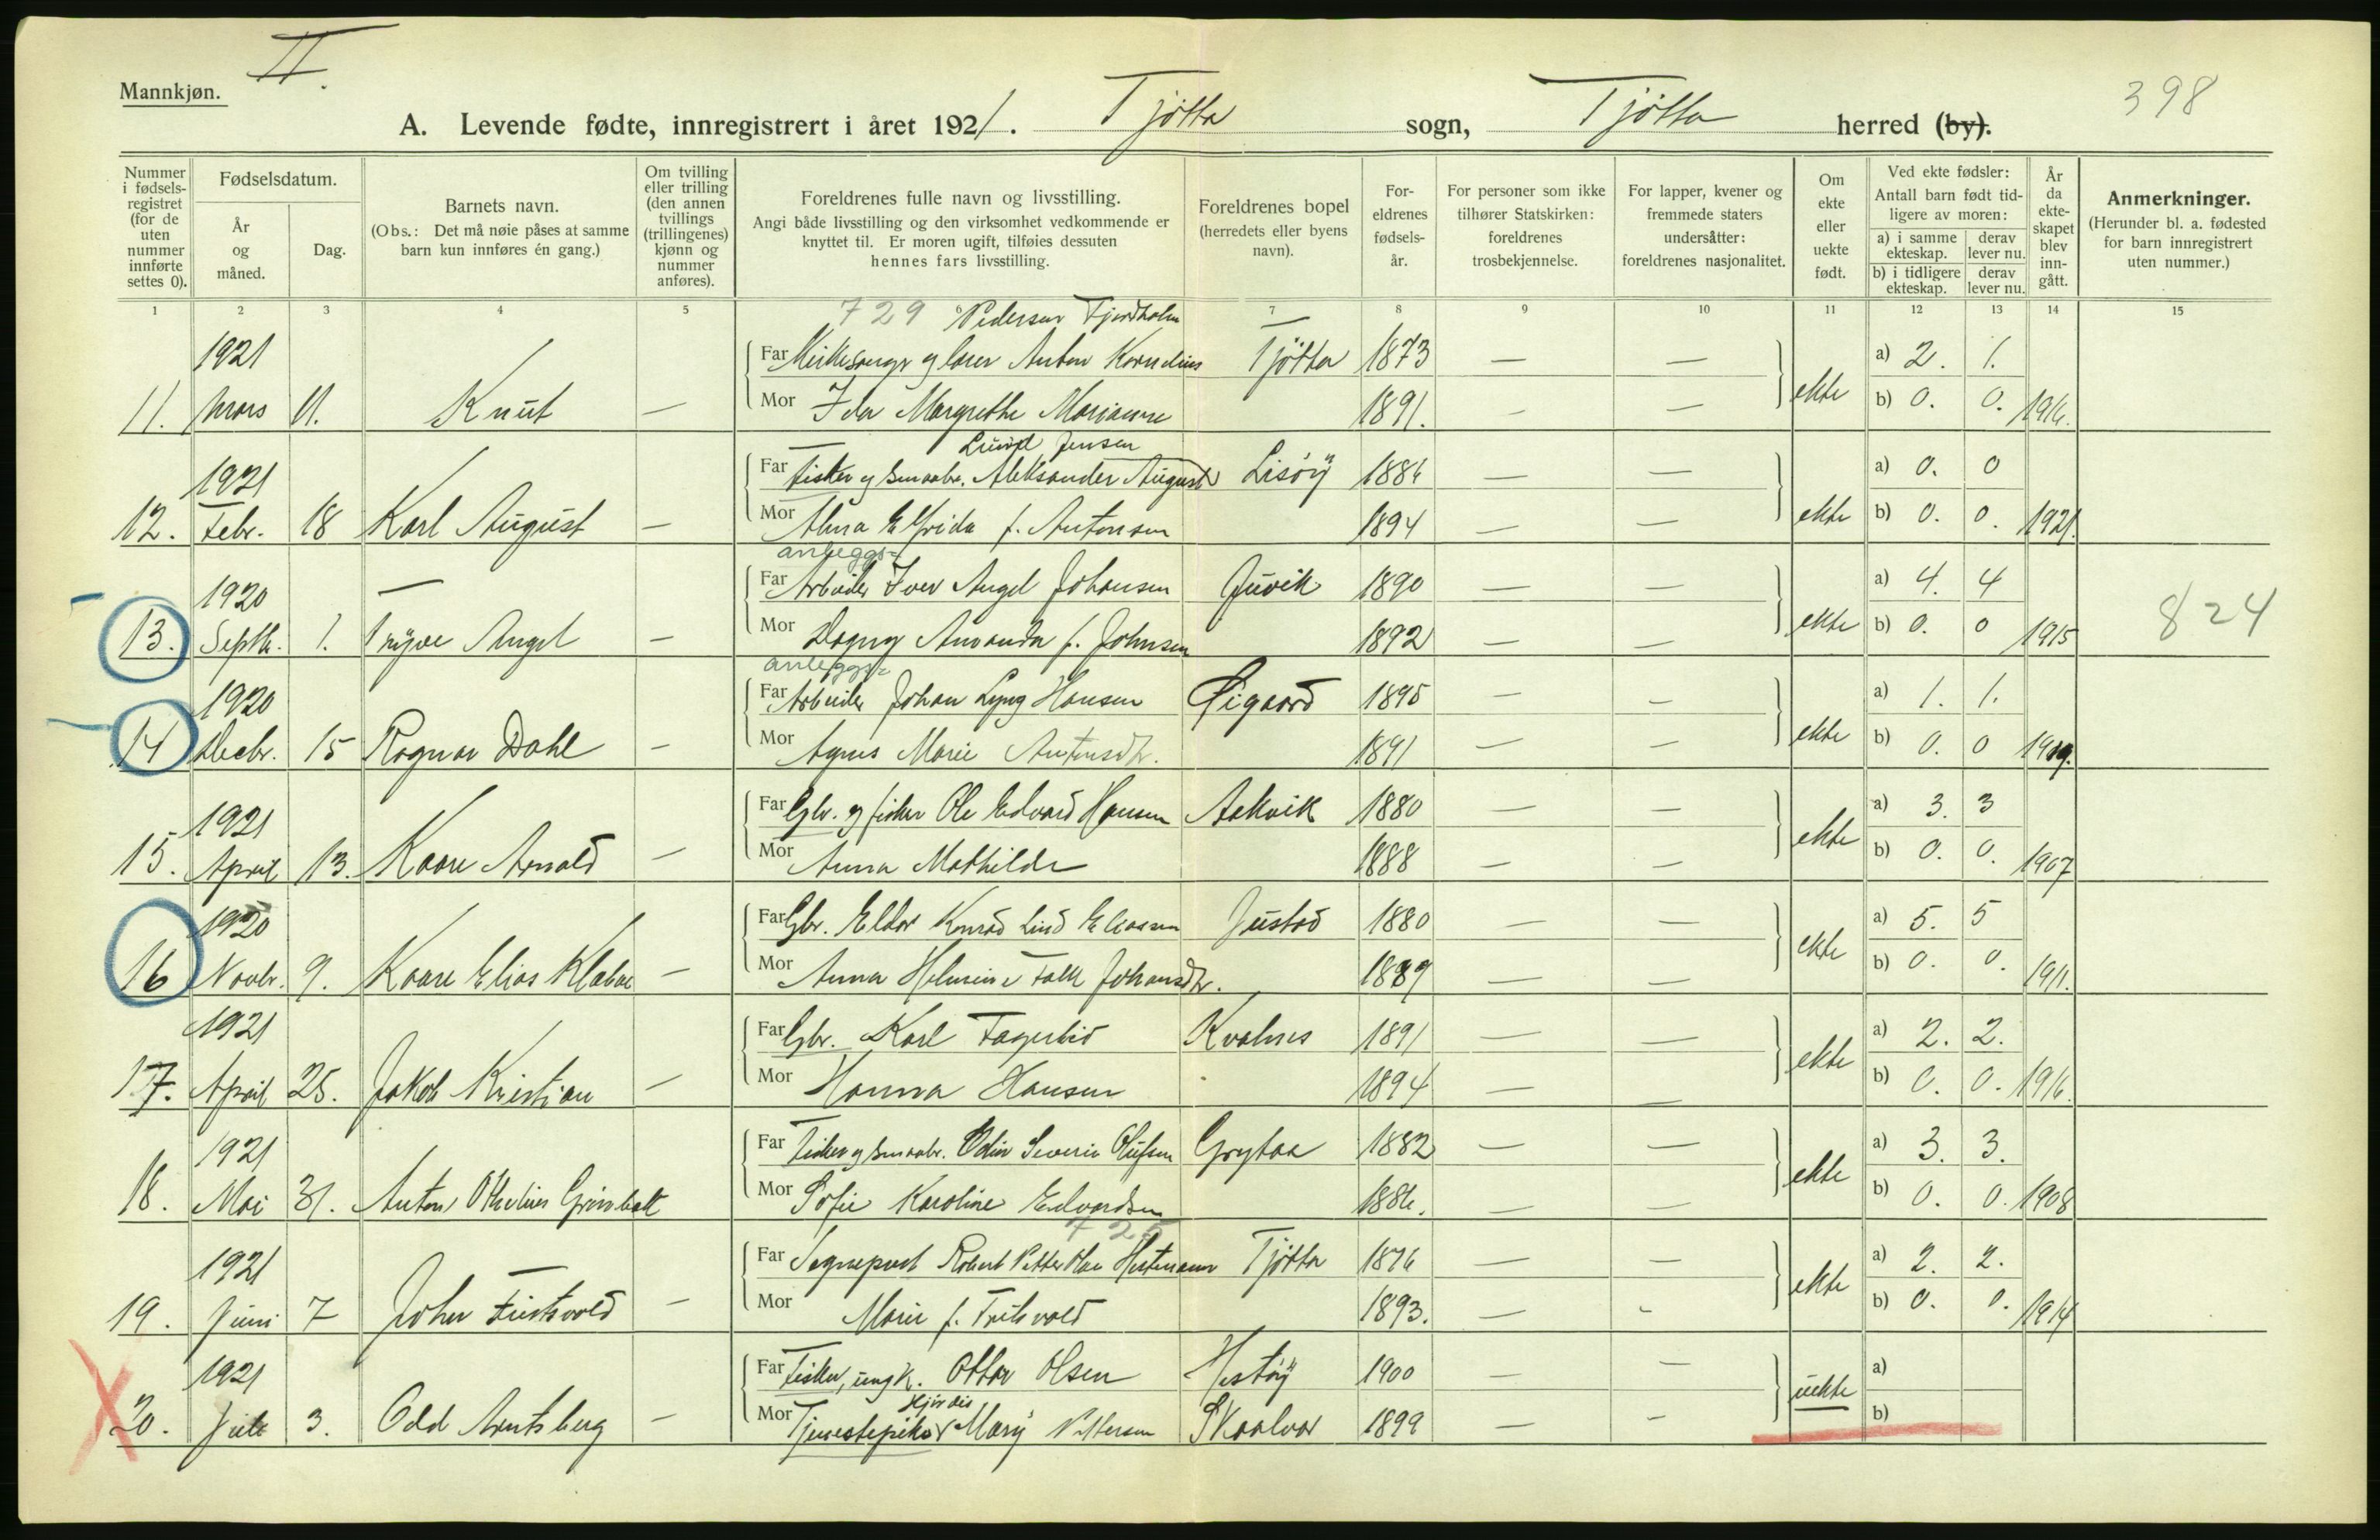 Mannkjøn.
II.
398
A. Levende fødte, innregistrert i året 1921. Tjötta sogn, Tjötta herred (by).
Nummer i fødselsregistret (for de uten nummer innførte settes 0).
Fødselsdatum.
År og måned.
Dag.
Barnets navn.
(Obs.: Det må nøie påses at samme barn kun innføres én gang.)
Om tvilling eller trilling (den annen tvillings (trillingenes) kjønn og nummer anføres).
Foreldrenes fulle navn og livsstilling.
Angi både livsstilling og den virksomhet vedkommende er knyttet til. Er moren ugift, tilføies dessuten hennes fars livsstilling.
Foreldrenes bopel (herredets eller byens navn).
Foreldrenes fødselsår.
For personer som ikke tilhører Statskirken: foreldrenes trosbekjennelse.
For lapper, kvener og fremmede staters undersåtter: foreldrenes nasjonalitet.
Om ekte eller uekte født.
Ved ekte fødsler:
Antall barn født tidligere av moren:
a) i samme ekteskap. derav lever nu.
b) i tidligere ekteskap. derav lever nu.
År da ekteskapet blev inngått.
Anmerkninger.
(Herunder bl. a. fødested for barn innregistrert uten nummer.)
1 2 3 4 5 6 7 8 9 10 11 12 13 14 15
729 Pedersen Fjordholm
1921 Far Kirkesanger og lærer Anton Kornelius Tjötta 1873 — — a) 2. 1.
11. Mars 11. Knut — Mor Ida Margrethe Marianne 1891. — — ekte b) 0. 0. 1916.
Lund Jensen
1921 Far Fisker og smaabr. Aleksander August Lisöy 1886 — — a) 0. 0
12. Febr. 18 Karl August — Mor Alma Elfrida f. Antonsen 1894 — — ekte b) 0. 0. 1921.
anleggs=
1920 Far Arbeider Iver Angel Johansen Juvik 1890 — — a) 4. 4
13. Septb. 1. Trygve Angel — Mor Dagny Amanda f. Johnsen 1892 — — ekte b) 0. 0 1915 824
anleggs=
1920 Far Arbeider Johan Lyng Hansen Øigaard 1895 — — a) 1. 1.
14 Decbr. 15 Ragnar Dahl — Mor Agnes Marie Antonsdtr. 1891 — — ekte b) 0. 0 1919.
1921 Far Gbr. og fisker Ole Edvard Hansen Aakvik 1880 — — a) 3. 3
15. April 13. Kaare Arnold — Mor Anna Mathilde 1888 — — ekte b) 0. 0. 1907
1920 Far Gbr. Eldor Konrad Lind Eliassen Justad 1880 — — a) 5. 5
16 Novbr. 9. Kaare Elias Klæboe — Mor Anna Helmine Falk Johansdtr. 1889 — — ekte b) 0. 0. 1911.
1921 Far Gbr. Karl Fagerlid Kvalnes 1891 — — a) 2. 2.
17. April 25. Jakob Kristian — Mor Hanna Hansen 1894 — — ekte b) 0. 0. 1916.
1921 Far Fisker og smaabr. Odin Severin Olufsen Grytaa 1882 — — a) 3. 3.
18. Mai 31. Anton Othelius — Mor Sofie Karoline Edvardsen 1886. — — ekte b) 0. 0. 1908
725
1921 Far Sogneprest Robert Petter Hestmann Tjötta 1876 — — a) 2. 2.
19. Juni 7 Johan — Mor Marie f. 1893. — - ekte b) 0. 0. 1914
1921 Far Fisker, ungk. Ottar Olsen Hestöy 1900 — — a)
Hjördis
20. Juli 3. Odd Arntsberg — Mor Tjenestepike Mary Pettersen Skaalvær 1899 — — uekte b)